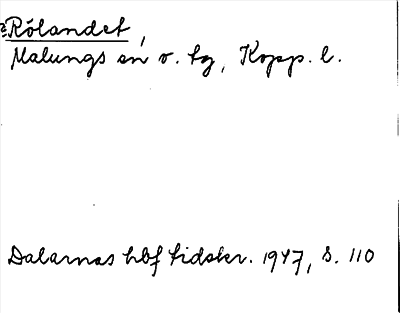 Rölandet,
Malungs sn o. tg, Kopp. l.
Dalarnas hbf tidskr. 1947, s. 110